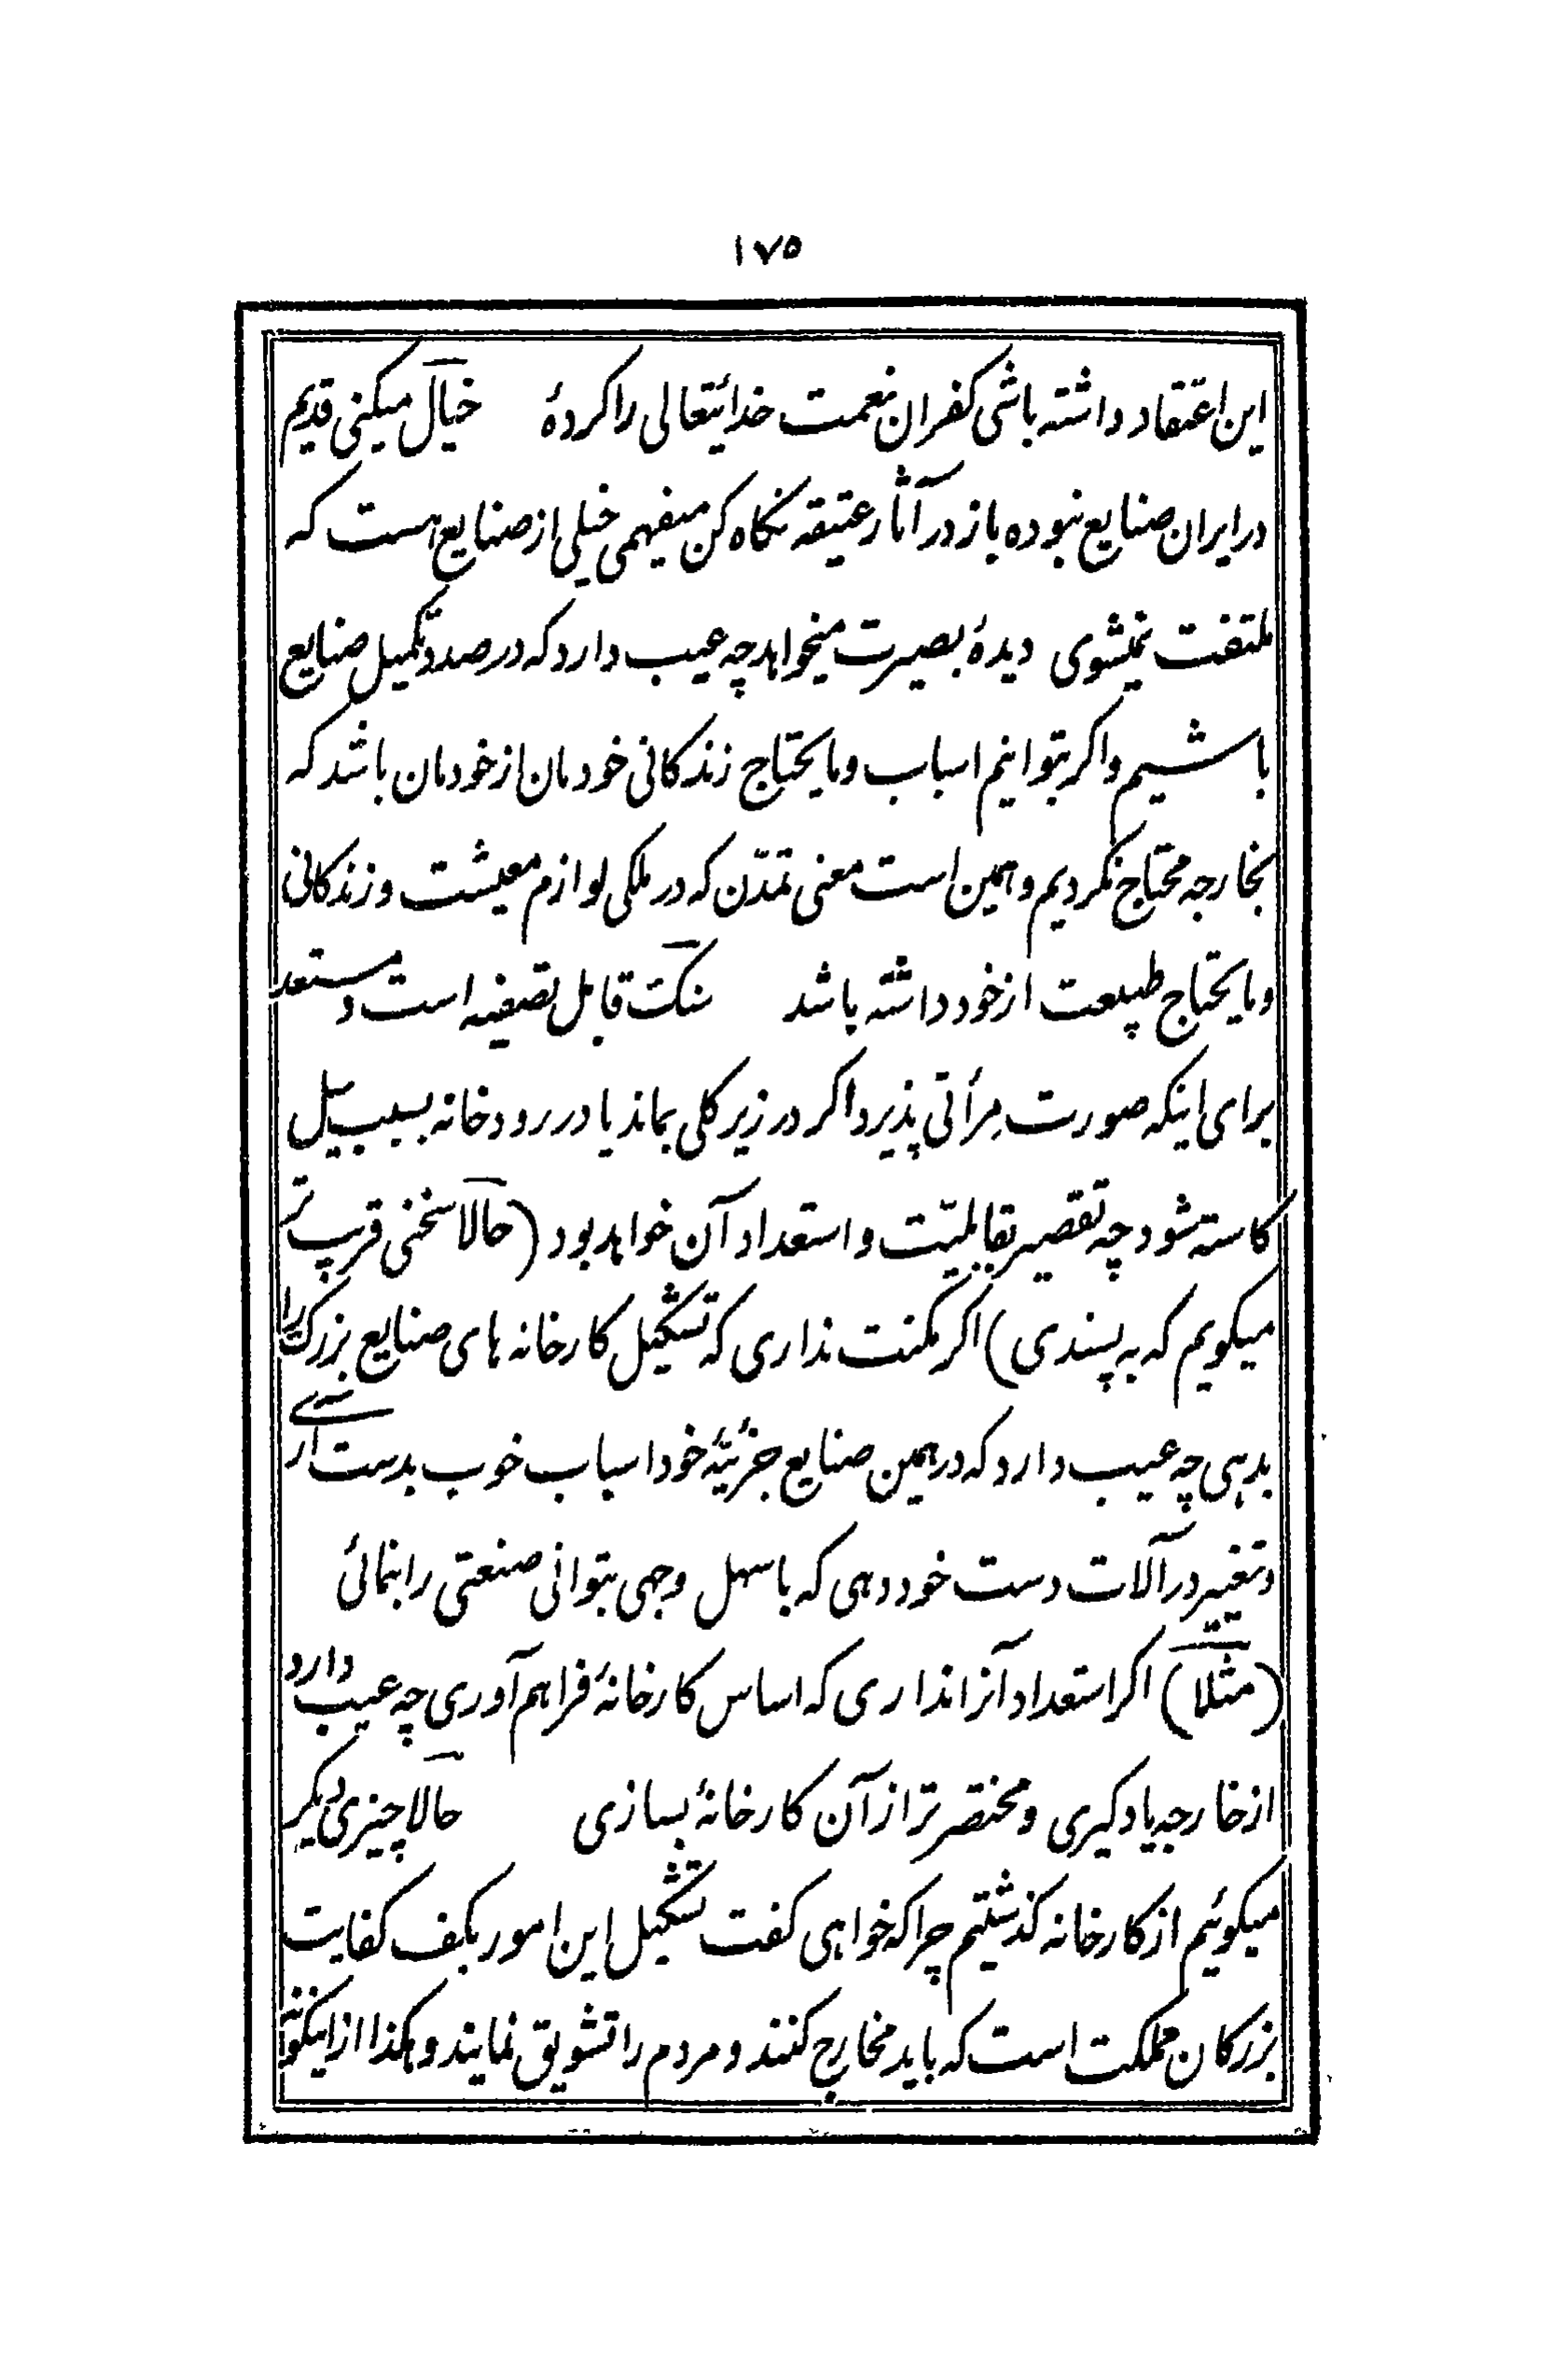 ۱۷۵
این اعتقاد داشته باشی کفران نعمت خدایتعالی را کردهٔ خیال میکنی قدیم
در ایران صنایع نبوده باز در آثار عتیقه نگاه کن میفهمی خیلی از صنایع هست که
ملتفت نمیشوی دیدهٔ بصیرت میخواهد چه عیب دارد که در صدد تکمیل صنایع
باشیم و اگر بتوانیم اسباب و مایحتاج زندگانی خودمان از خودمان باشد که
بخارجه محتاج نگردیم و همین است معنی تمدّن که در ملکی لوازم معیشت و زندگانی
و مایحتاج طبیعت از خود داشته باشد سنگ قابل تصفیه است و مستعد
برای اینکه صورت مرأتی پذیرد اگر در زیر گلی بماند یا در رودخانه بسبب سیل
کاسته شود چه تقصیر بقابلیّت و استعداد آن خواهد بود (حالا سخنی قریب تر
میگویم که به پسندی) اگر مکنت نداری که تشکیل کارخانه های صنایع بزرگ را
بدهی چه عیب دارد که در همین صنایع جزئیّهٔ خود اسباب خوب بدست آری
و تغییر در آلات دست خود دهی که باسهل وجهی بتوانی صنعتی را بنمائی
(مثلا) اگر استعداد آنرا نداری که اساس کارخانهٔ فراهم آوری چه عیب دارد
از خارجه یاد گیری و مختصر تر از آن کارخانهٔ بسازی حالا چیزی دیگر
میگوئیم از کارخانه گذشتیم چرا که خواهی گفت تشکیل این امور بکف کفایت
بزرگان مملکت است که باید مخارج کنند و مردم را تشویق نمایند و هکذا از اینگونه